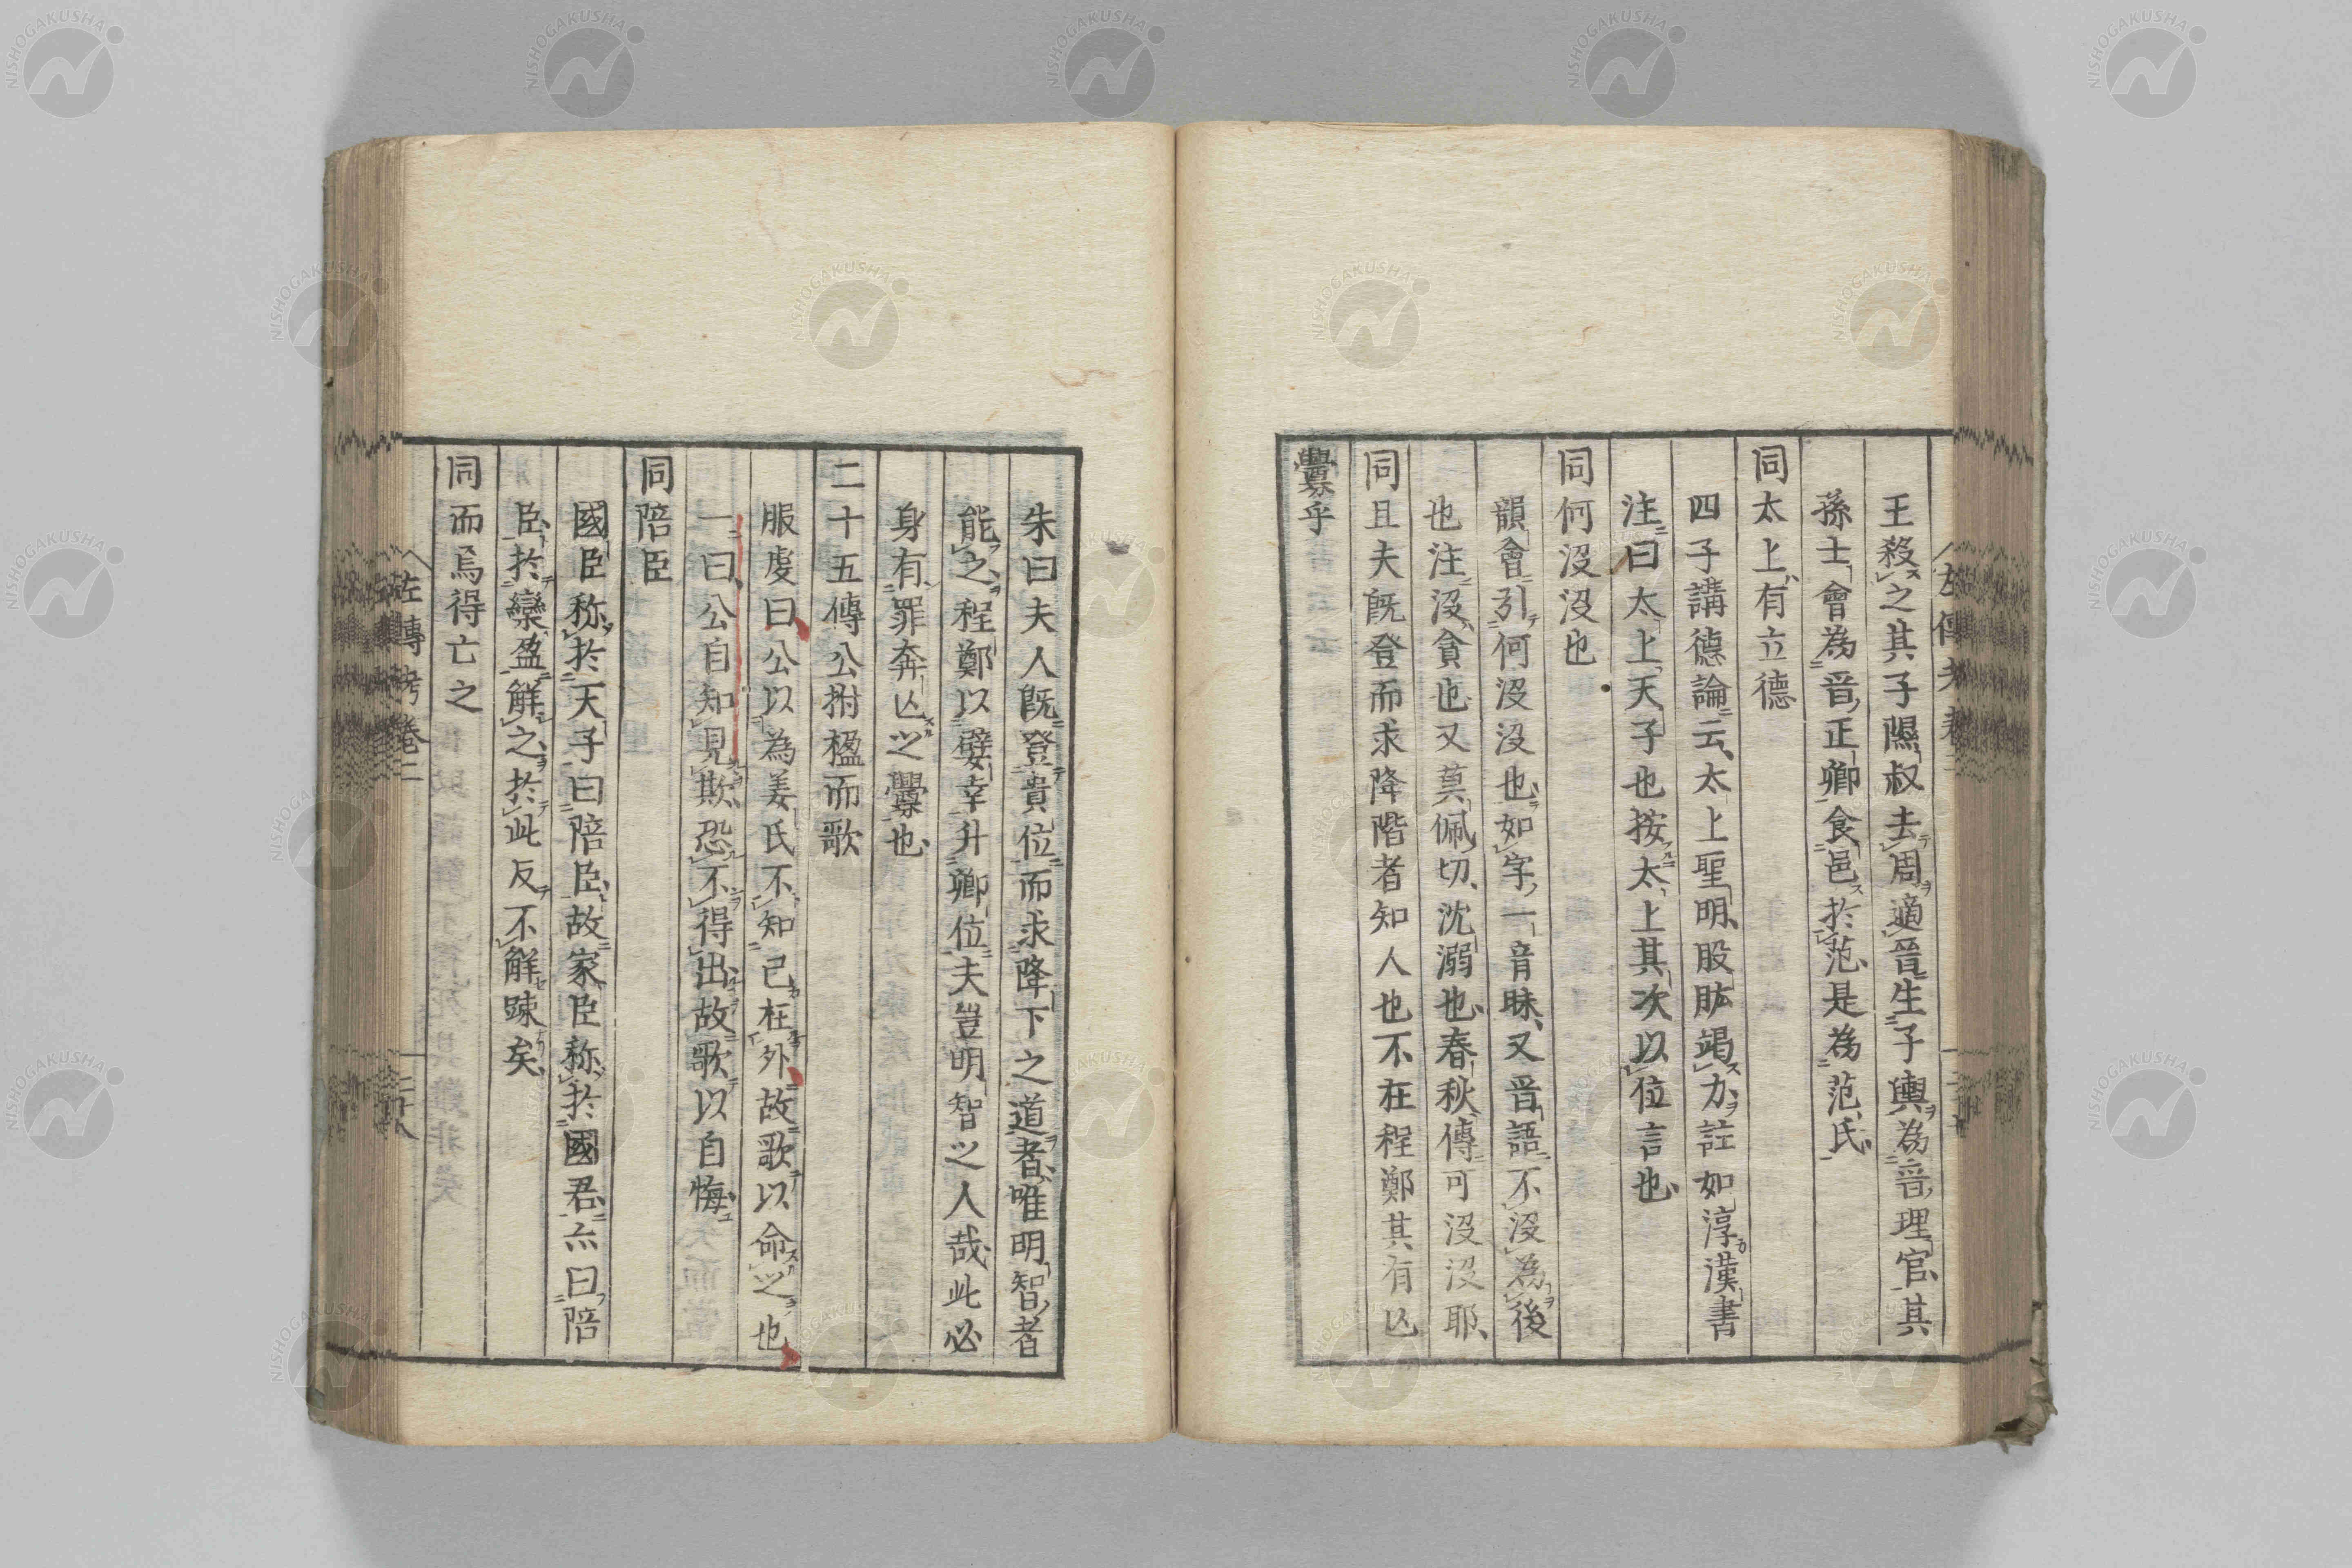 王殺之其子隰叔去周適晉生子輿為晉理官其
孫士會為晉正卿食邑於范是為范氏
同太上有立德
四子講德論云太上聖明股肱竭力註如淳漢書
注曰太上天子也按太上其次以位言也
同何沒沒也
韻會引何沒沒也如字一音昧又晉語不沒為後
也注沒貪也又莫佩切沈溺也春秋傳可沒沒耶
同且夫既登而求降階者知人也不在程鄭其有亾
釁乎
朱曰夫人既登貴位而求降下之道者唯明智者
能之程鄭以嬖幸升卿位夫豈明智之人哉此必
身有罪奔亾之釁也
二十五傳公拊楹而歌
服虔曰公以為姜氏不知己在外故歌以命之也
一曰公自知見欺恐不得出故歌以自悔
同陪臣
國臣称於天子曰陪臣故家臣称於國君亦曰陪
臣於欒盈觧之於此反不觧踈矣
同而焉得亡之
左傳考卷二
二十八
NISHOGAKUSHA